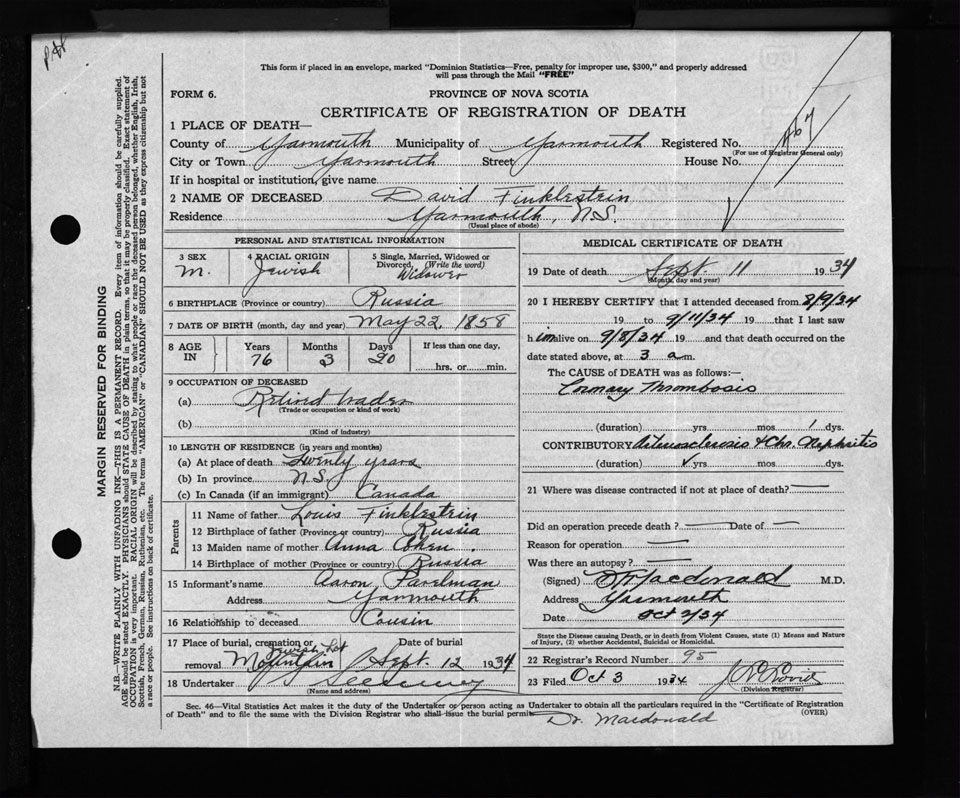 This form if placed in an envelope, marked "Dominion Statistics—Free, penalty for improper use, $300," and properly addressed
will pass through the Mail "FREE"
FORM 6.
PROVINCE OF NOVA SCOTIA
CERTIFICATE OF REGISTRATION OF DEATH
1 PLACE OF DEATH—
County of Yarmouth Municipality of Yarmouth Registered No. 467
(For use of Registrar General only)
City or Town Yarmouth Street House No.
If in hospital or institution, give name
2 NAME OF DECEASED David Finklestein
Residence Yarmouth, N.S.
(Usual place of abode)
PERSONAL AND STATISTICAL INFORMATION
3 SEX 4 RACIAL ORIGIN 5 Single, Married, Widowed or
Divorced, (Write the word)
M. Jewish Widower
6 BIRTHPLACE (Province or country) Russia
7 DATE OF BIRTH (month, day and year) May 22, 1858
8 AGE IN Years Months Days If less than one day,
76 3 20 hrs. or min.
9 OCCUPATION OF DECEASED
(a) Retired trader
(Trade or occupation or kind of work)
(b)
(Kind of industry)
10 LENGTH OF RESIDENCE (in years and months)
(a) At place of death Twenty years
(b) In province N.S.
(c) In Canada (if an immigrant) Canada
Parents
11 Name of father Louis Finklestein
12 Birthplace of father (Province or country) Russia
13 Maiden name of mother Anna Cohen
14 Birthplace of mother (Province or country) Russia
15 Informant's name Aaron
Address Yarmouth
16 Relationship to deceased Cousin
17 Place of burial, cremation or removal Date of burial
Jewish Lot
Mountain Sept. 12 1934
18 Undertaker
(Name and address)
MEDICAL CERTIFICATE OF DEATH
19 Date of death Sept. 11 1934
(Month, day and year)
20 I HEREBY CERTIFY that I attended deceased from 8/9/34
19 to 9/11/34 19 that I last saw
him alive on 9/8/34 19 and that death occurred on the
date stated above, at 3 a m.
The CAUSE of DEATH was as follows:
Coronary Thrombosis
(duration) yrs mos 1 dys.
CONTRIBUTORY Arteriosclerosis & Chr. Nephritis
(duration) yrs mos dys.
21 Where was disease contracted if not at place of death? —
Did an operation precede death? — Date of —
Reason for operation —
Was there an autopsy? —
(Signed) Macdonald M.D.
Address Yarmouth
Date Oct 2/34
State the Disease causing Death, or in death from Violent Causes, state (1) Means and Nature
of Injury, (2) whether Accidental, Suicidal or Homicidal.
22 Registrar's Record Number 95
23 Filed Oct 3 1934
(Division Registrar)
Sec. 46—Vital Statistics Act makes it the duty of the Undertaker or person acting as Undertaker to obtain all the particulars required in the "Certificate of Registration
of Death" and to file the same with the Division Registrar who shall issue the burial permit. (OVER)
Dr. Macdonald
MARGIN RESERVED FOR BINDING
N.B.—WRITE PLAINLY WITH UNFADING INK—THIS IS A PERMANENT RECORD. Every item of information should be carefully supplied.
AGE should be stated EXACTLY. PHYSICIANS should STATE CAUSE OF DEATH in plain terms, so that it may be properly classified. Exact statement of
OCCUPATION is very important. RACIAL ORIGIN will be described by stating to what people or race the deceased person belonged, whether English, Irish,
Scottish, French, German, Russian, Ruthenian, etc. The terms "AMERICAN" or "CANADIAN" SHOULD NOT BE USED as they express citizenship but not
a race or people. See instructions on back of certificate.